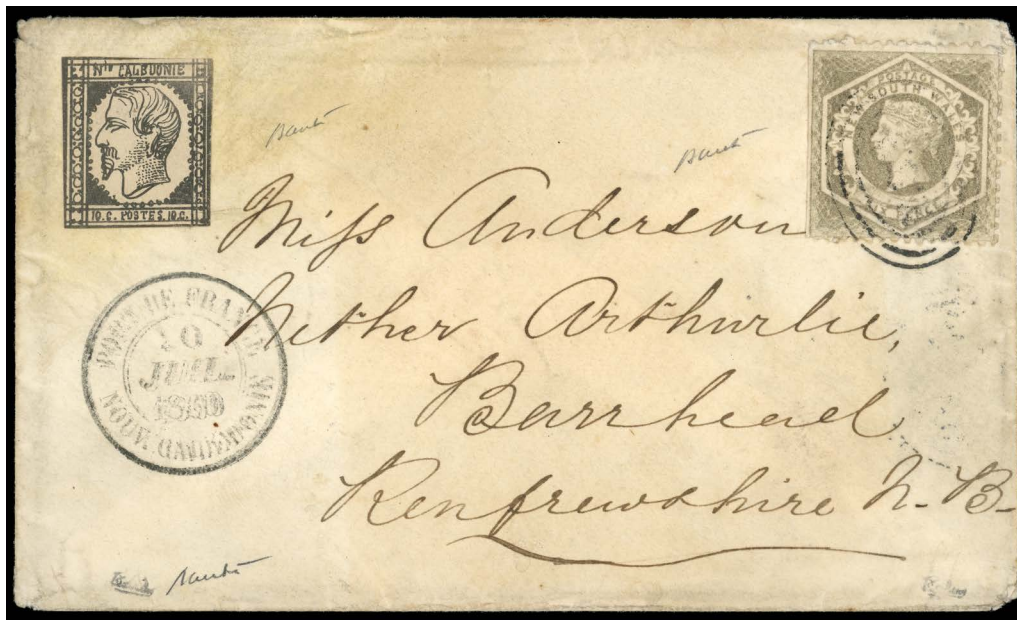 Nlle CALEDONIE
10. C. POSTES. 10. C.
POSTAGE
SOUTH WALES
SIX PENCE
Miss Anderson
Nether Arthurlie,
Barrhead
Renfrewshire N. B.
PORT DE FRANCE
10
JUIL.
1860
NOUV. CALEDONIE